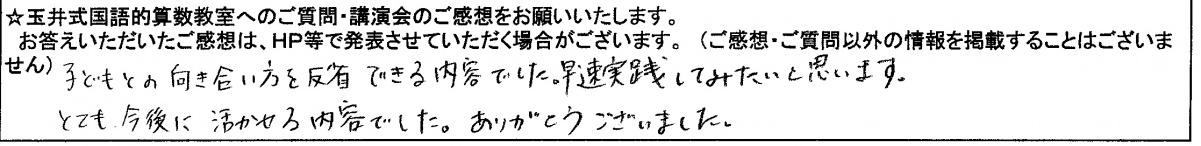 ☆玉井式国語的算数教室へのご質問・講演会のご感想をお願いいたします。
お答えいただいたご感想は、HP等で発表させていただく場合がございます。（ご感想・ご質問以外の情報を掲載することはございま
せん）子どもとの向き合い方を反省できる内容でした。早速実践してみたいと思います。
とても今後に活かせる内容でした。ありがとうございました。